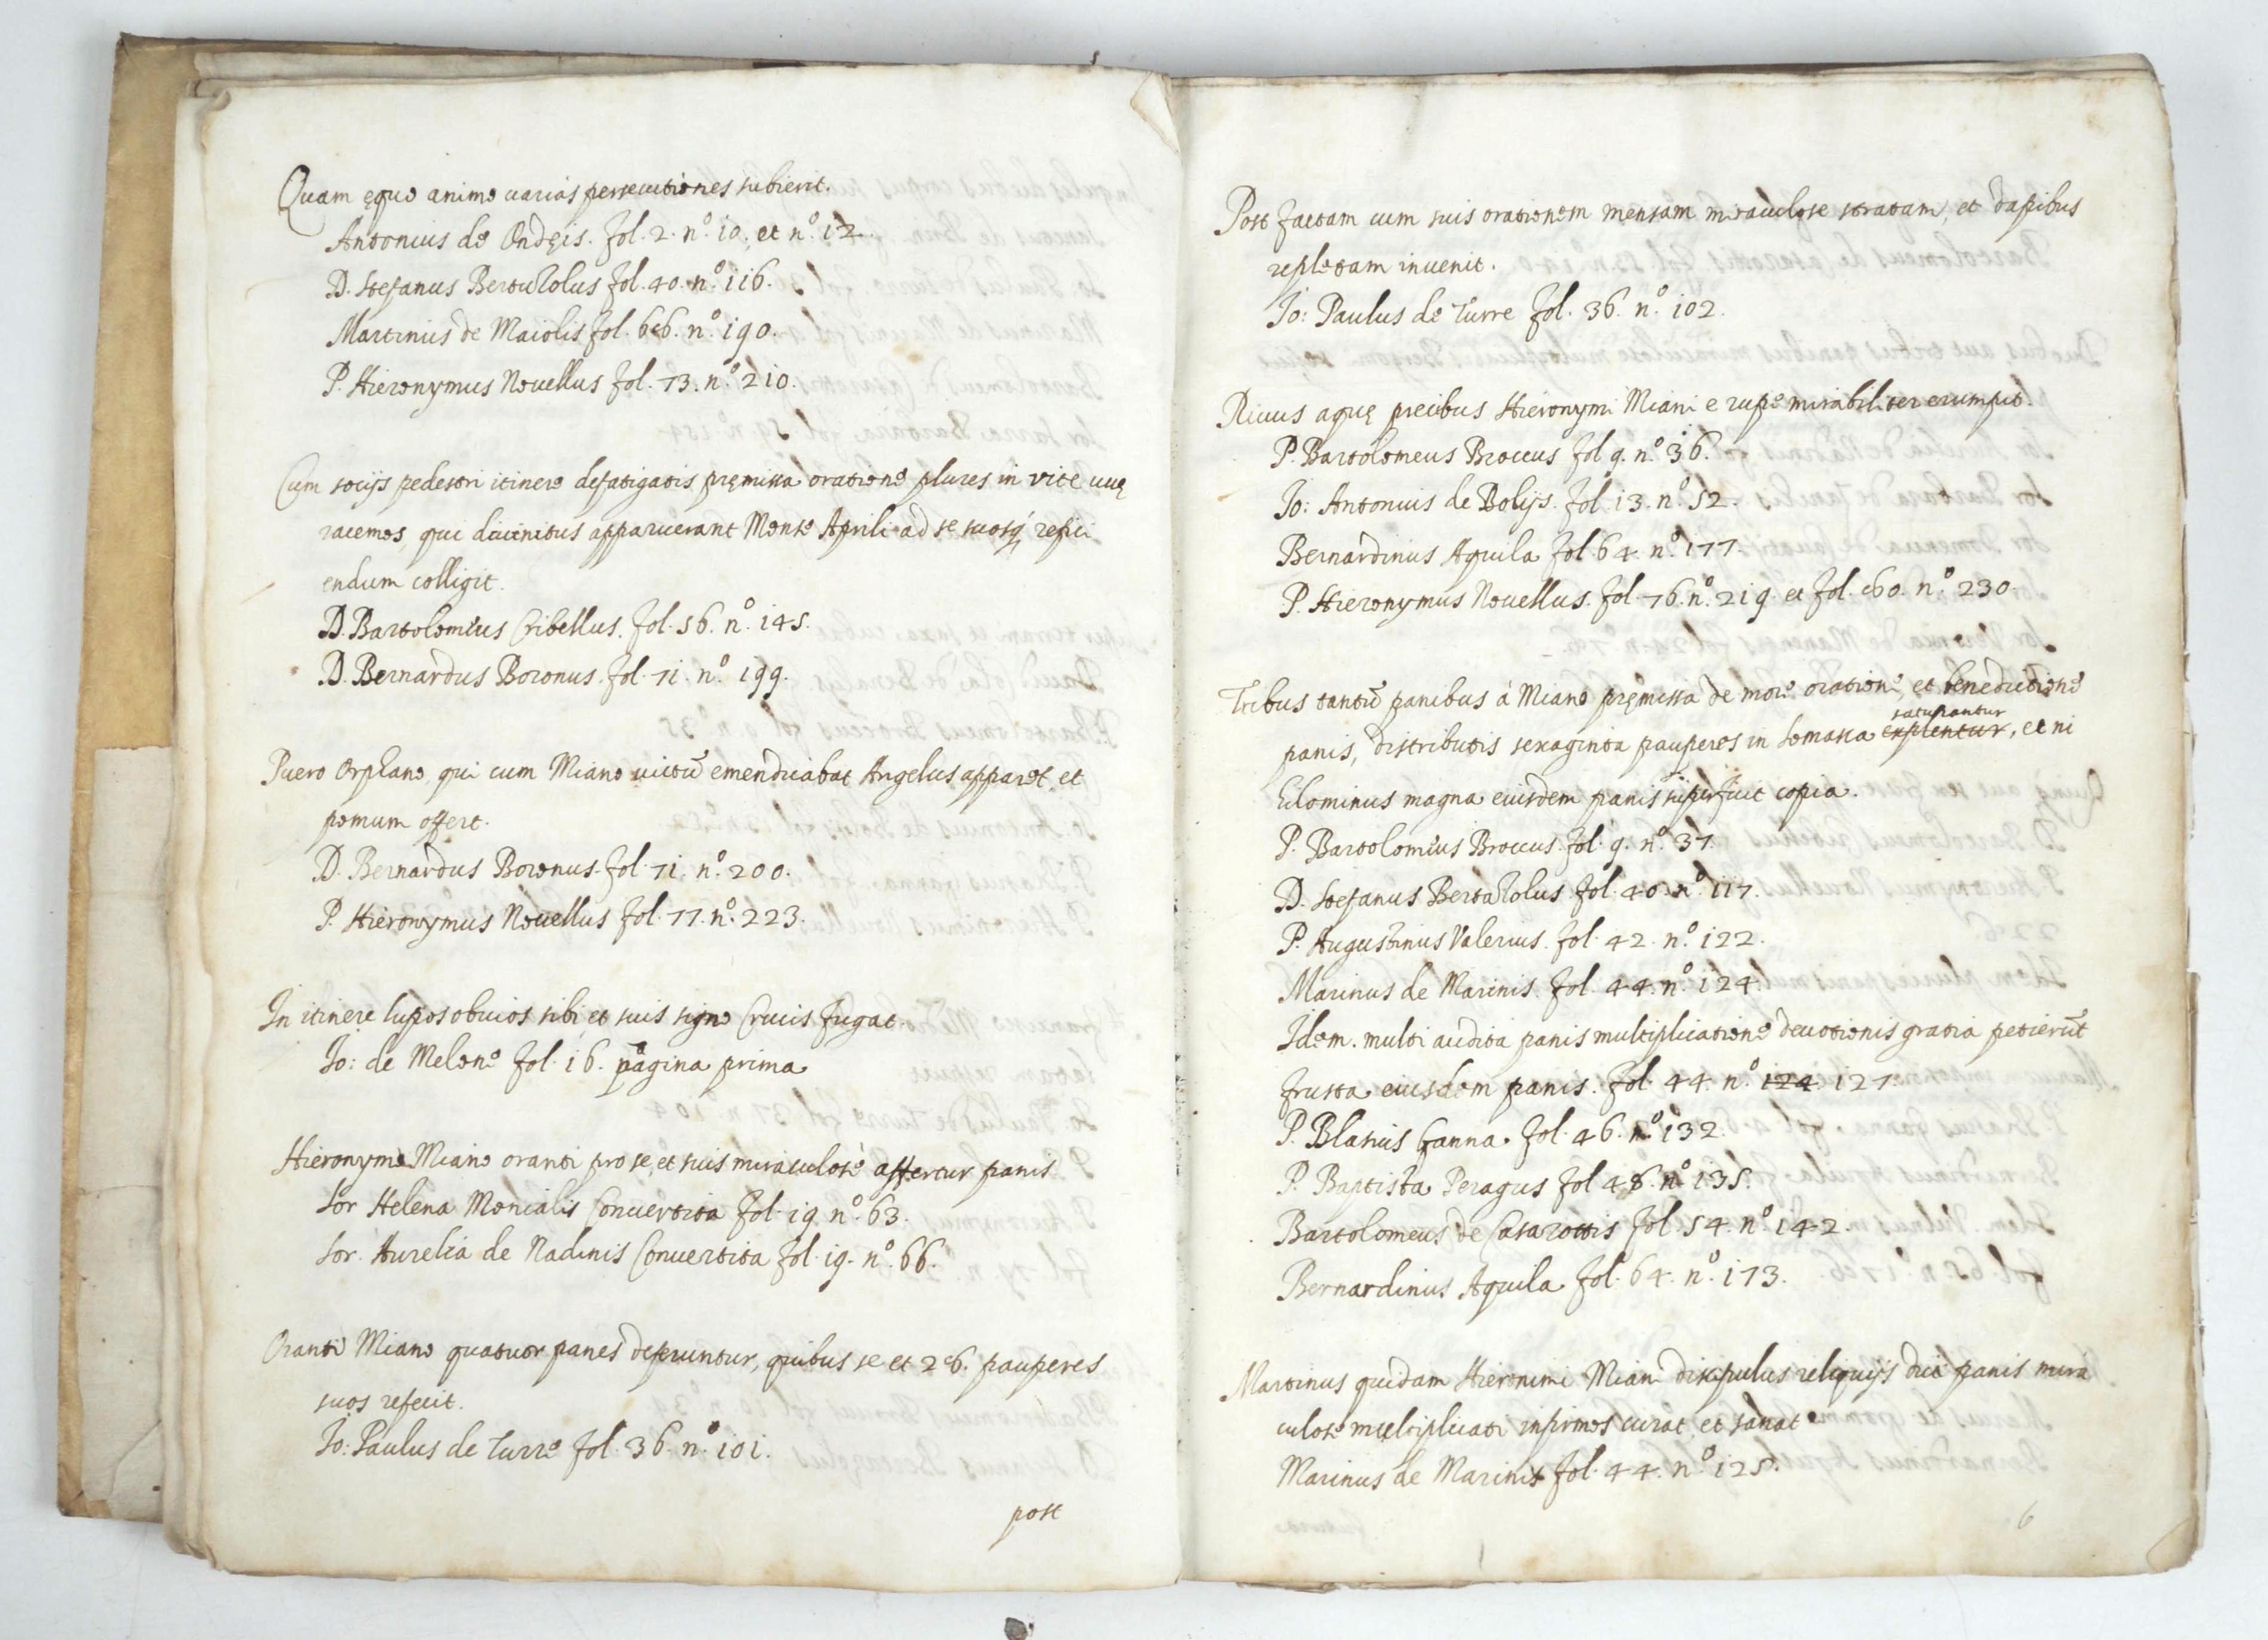 Quam ęquo animo varias persecutiones subierit.
Antonius de Ondęis. fol. 2. n.º 10, et n.º 12.
D. Stefanus Bertazolus fol. 40. n.º 116.
Martinus de Maiolis fol. 68. n.º 190.
P. Hieronymus Novellus fol. 73. n.º 210.
Cum socijs pedestri itinere defatigatis pręmissa oratione plures in vite uuę
racemos, qui divinitus apparuerant Mense Aprili ad se suosq́ refici
endum colligit.
D. Bartolomeus Cribellus. fol. 56. n.º 145.
D. Bernardus Boronus. fol. 71. n.º 199.
Puero Orphano, qui cum Miano victũ emendicabat Angelus apparet, et
pomum offert.
D. Bernardus Boronus. fol. 71. n.º 200.
P. Hieronymus Novellus fol. 77. n.º 223.
In itinere lupos obvios sibi et suis signo Crucis fugat
Io: de Melone fol. 16. pagina prima
Hieronymo Miano oranti pro se, et suis miraculosè affertur panis
Sor Helena Monialis Convertita fol. 19. n.º 63.
Sor. Aurelia de Nadinis Convertita fol. 19. n.º 66.
Oranti Miano quatuor panes deferuntur, quibus se et 28. pauperes
suos refecit.
Io: Paulus de Turre fol. 36. n.º 101.
post
Post factam cum suis orationem mensam miraculose stratam, et dapibus
repletam invenit.
Io: Paulus de Turre fol. 36. n.º 102.
Rivus aquę precibus Hieronymi Miani e rupe mirabiliter erumpit.
P. Bartolomeus Broccus fol. 9. n.º 36.
Io: Antonius de Bolijs. fol. 13. n.º 52.
Bernardinus Aquila fol. 64. n.º 177.
P. Hieronymus Novellus. fol. 76. n.º 219. et fol. 80. n.º 230
Tribus tantũ panibus à Miano pręmissa de more oratione, et benedictione
panis, distributis sexaginta pauperes in Somasca explentur saturantur, et ni
hilominus magna eiusdem panis superfuit copia.
P. Bartolomeus Broccus. fol. 9. n.º 37.
D. Stefanus Bertazolus fol. 40. n.º 117.
P. Augustinus Valerius. fol. 42. n.º 122.
Marinus de Marinis. fol. 44. n.º 124.
Idem. multi audita panis multiplicatione devotionis gratia petierũt
frusta eiusdem panis. fol. 44. n.º 124 127.
P. Blasius Ganna. fol. 46. n.º 132.
P. Baptista Peragus fol. 48. n.º 135.
Bartolomeus de Casarottis fol. 54. n.º 142.
Bernardinus Aquila fol. 64. n.º 173.
Martinus quidam Hieronimi Miani discipulus reliquijs dicti panis mira
culose multiplicati infirmos curat et sanat
Marinus de Marinis fol. 44. n.º 125.
6